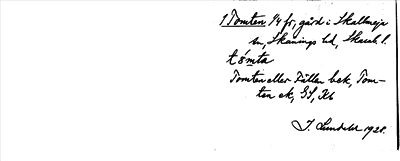 1 Tomten 1/4 fr, gård i Skallmeja
sn, Skånings hd, Skarab. l.
tómta
Tomten eller Källen bek, Tom-
ten ek, GS, Kb
J. Lundahl 1928.